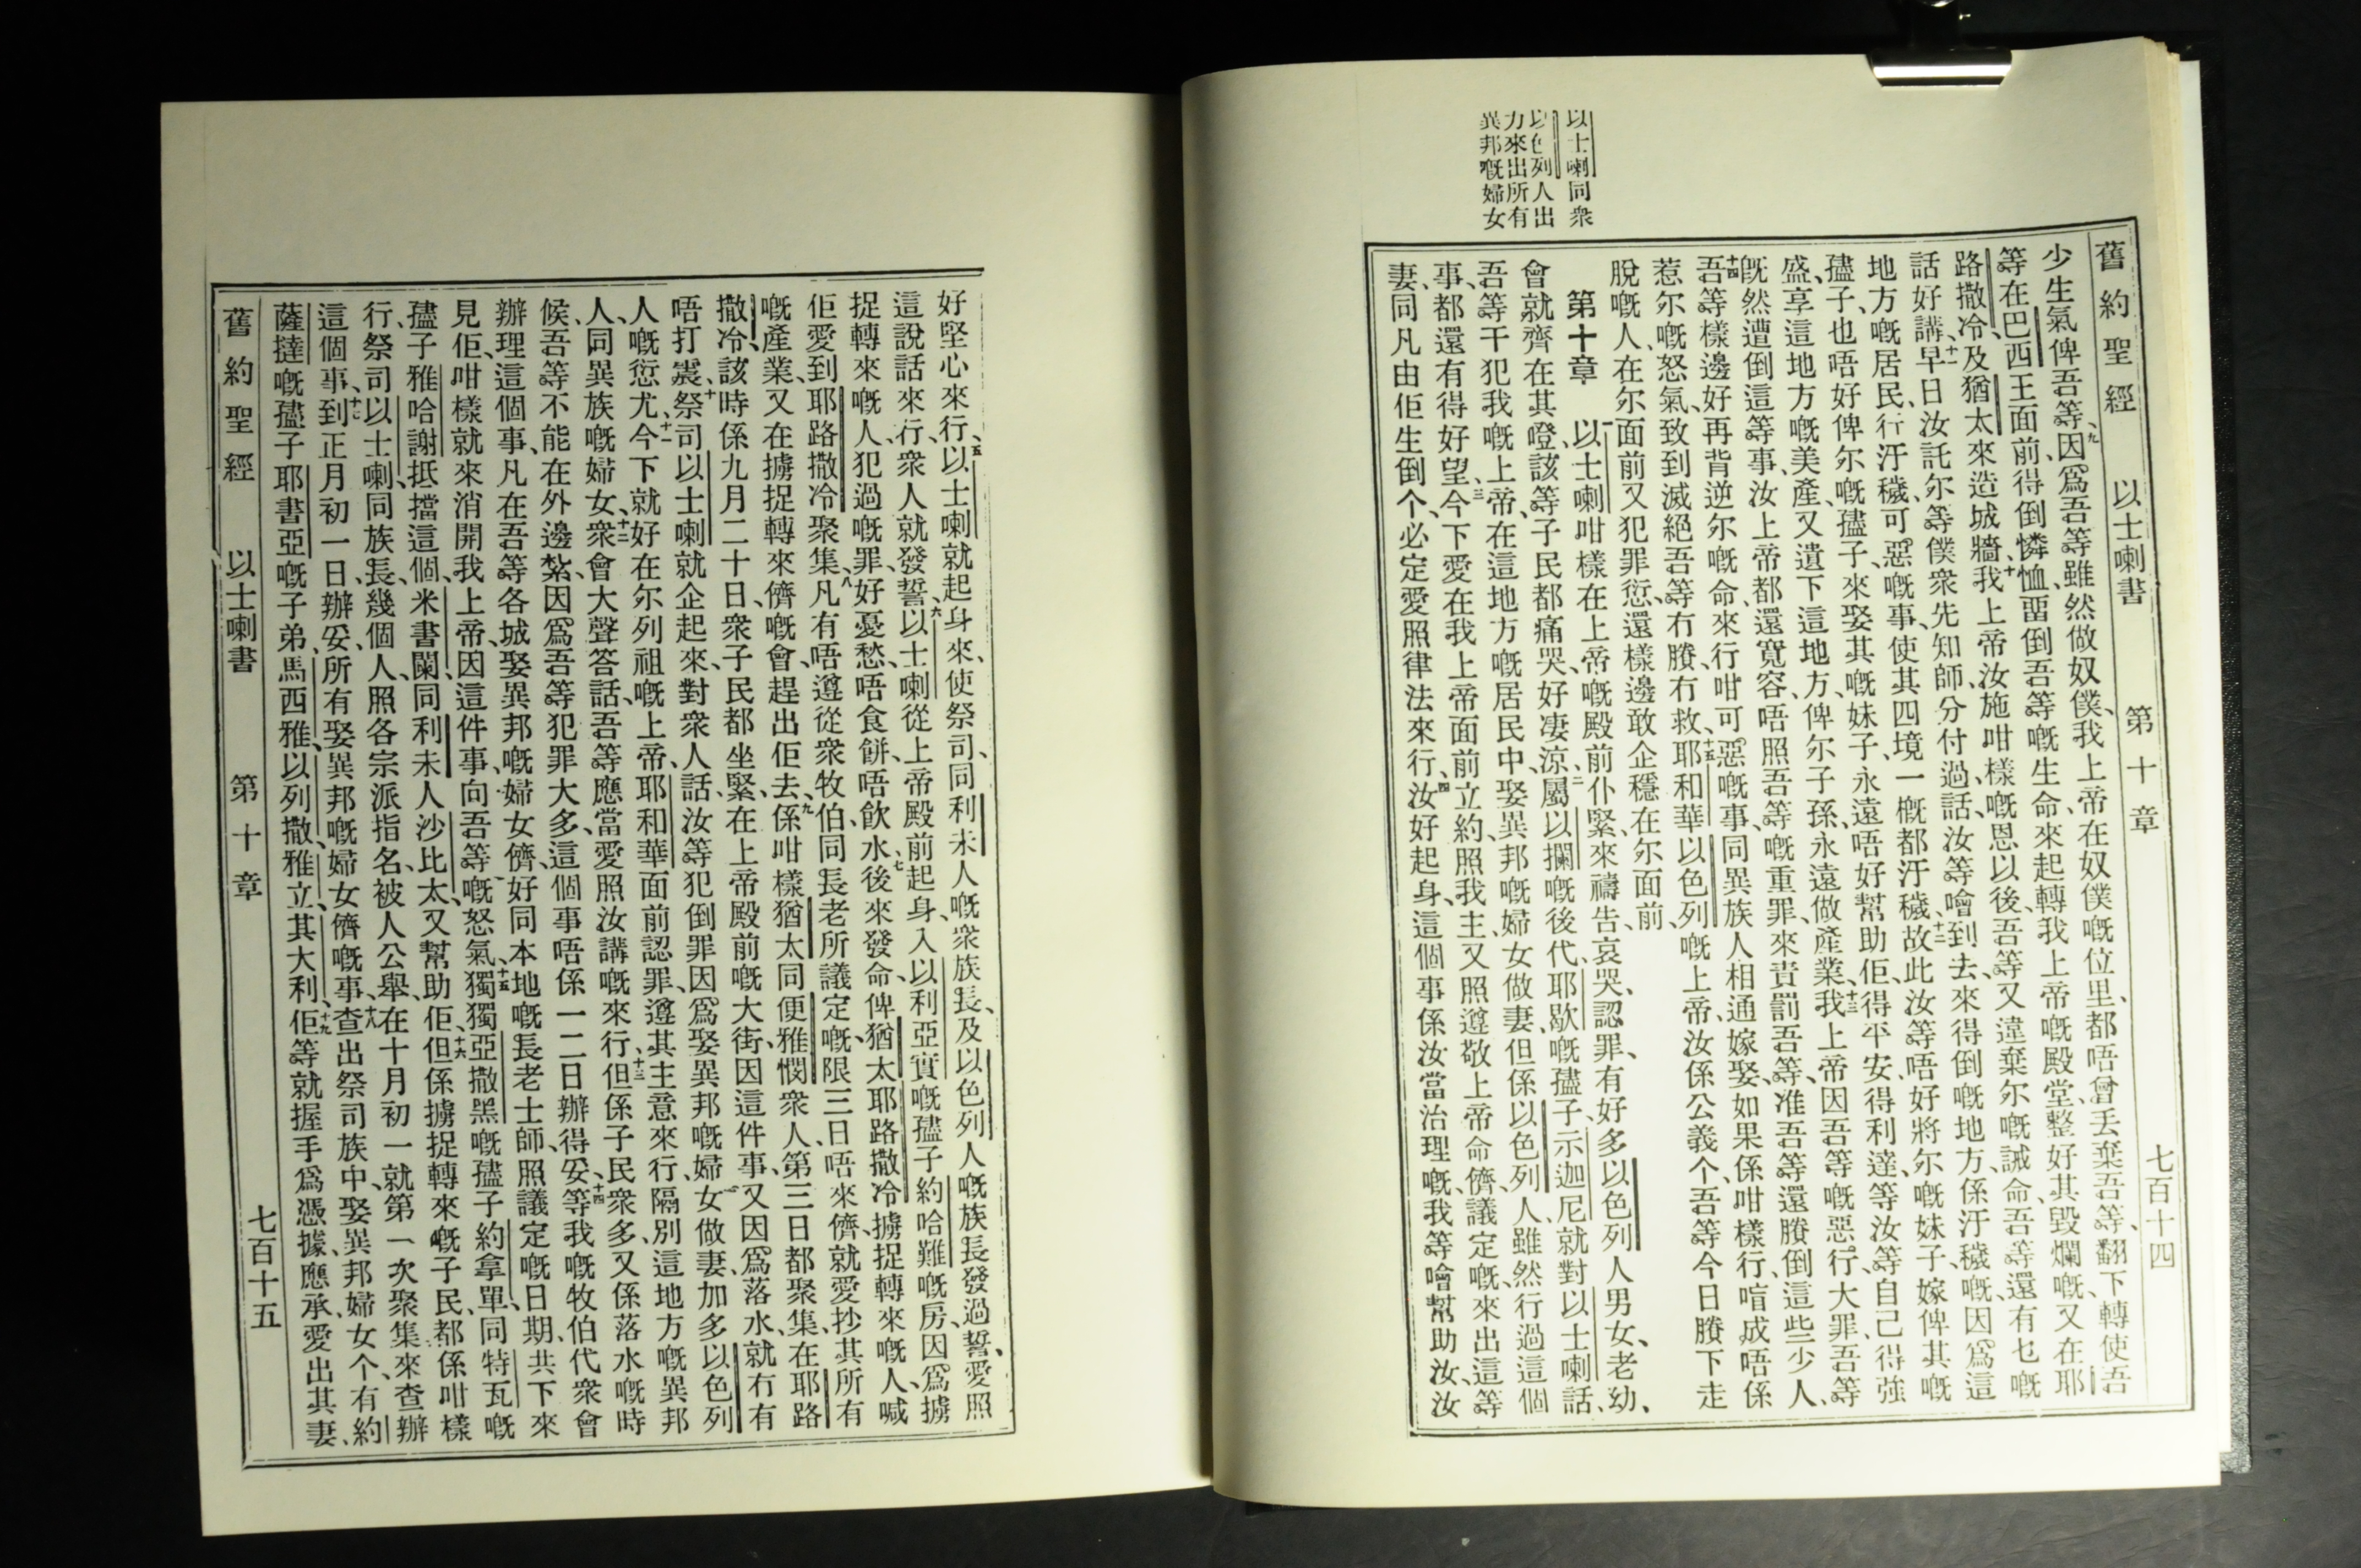 舊約聖經 以士喇書 第十章 七百十四
少生氣俾吾等、九因爲吾等雖然做奴僕、我上帝在奴僕嘅位里、都唔曾丟棄吾等、翻下轉使吾
等在巴西王面前、得倒憐恤、畱倒吾等嘅生命、來起轉我上帝嘅殿堂、整好其毀爛嘅、又在耶
路撒冷、及猶太來造城牆、十我上帝汝施咁樣嘅恩以後、吾等又違棄尔嘅誡命、吾等還有乜嘅
話好講、十一早日汝託尔等僕衆先知師、分付過話、汝等噲到去、來得倒嘅地方、係汙穢嘅、因爲這
地方嘅居民、行汙穢可惡嘅事、使其四境一概都汙穢、十二故此汝等唔好將尔嘅妹子、嫁俾其嘅
孻子、也唔好俾尔嘅孻子、來娶其嘅妹子、永遠唔好幫助佢、得平安、得利達、等汝等自己得強
盛、享這地方嘅美產、又遺下這地方、俾尔子孫、永遠做產業、十三我上帝因吾等嘅惡行、大罪、吾等
旣然遭倒這等事、汝上帝都還寬容、唔照吾等嘅重罪、來責罰吾等、准吾等還賸倒這些少人、
十四吾等樣邊好再背逆尔嘅命、來行咁可惡嘅事、同異族人相通嫁娶、如果係咁樣行、啱成唔係
惹尔嘅怒氣、致到滅絕吾等冇賸冇救、十五耶和華以色列嘅上帝、汝係公義个、吾等今日賸下走
脫嘅人、在尔面前又犯罪愆、還樣邊敢企穩在尔面前、
第十章 一以士喇咁樣在上帝嘅殿前仆緊、來禱告哀哭、認罪、有好多以色列人男女、老幼、
會就齊在其噔、該等子民都痛哭、好凄涼、二屬以攔嘅後代、耶歇嘅孻子、示迦尼就對以士喇話、
吾等干犯我嘅上帝、在這地方嘅居民中、娶異邦嘅婦女做妻、但係以色列人、雖然行過這個
事、都還有得好望、三今下愛在我上帝面前立約、照我主、又照遵敬上帝命儕、議定嘅、來出這等
妻、同凡由佢生倒个、必定愛照律法來行、四汝好起身、這個事係汝當治理嘅、我等噲幫助汝、汝
以士喇同衆
以色列人出
力來出所有
異邦嘅婦女
好堅心來行、五以士喇就起身來、使祭司、同利未人嘅衆族長、及以色列人嘅族長發過誓、愛照
這說話來行、衆人就發誓、六以士喇從上帝殿前起身、入以利亞實嘅孻子約哈難嘅房、因爲擄
捉轉來嘅人、犯過嘅罪、好憂愁、唔食餅、唔飲水、七後來發命、俾猶太耶路撒冷、擄捉轉來嘅人、喊
佢愛到耶路撒冷聚集、八凡有唔遵從衆牧伯、同長老所議定嘅、限三日、唔來儕、就愛抄其所有
嘅產業、又在擄捉轉來儕嘅會、趕出佢去、九係咁樣猶太同便雅憫衆人、第三日都聚集、在耶路
撒冷、該時係九月二十日、衆子民都坐緊、在上帝殿前嘅大街、因這件事、又因爲落水、就冇有
唔打震、十祭司以士喇就企起來、對衆人話、汝等犯倒罪、因爲娶異邦嘅婦女做妻、加多以色列
人嘅愆尤、十一今下就好在尔列祖嘅上帝、耶和華面前認罪、遵其主意來行、隔別這地方嘅異邦
人、同異族嘅婦女、十二衆會大聲答話、吾等應當愛照汝講嘅來行、十三但係子民衆多、又係落水嘅時
候、吾等不能在外邊紮、因爲吾等犯罪大多、這個事唔係一二日辦得妥、十四等我嘅牧伯代衆會
辦理這個事、凡在吾等各城娶異邦嘅婦女儕、好同本地嘅長老士師、照議定嘅日期、共下來
見佢、咁樣就來消開我上帝、因這件事、向吾等嘅怒氣、十五獨獨亞撒黑嘅孻子約拿單、同特瓦嘅
孻子雅哈謝抵擋這個、米書闌、同利未人沙比太、又幫助佢、十六但係擄捉轉來嘅子民、都係咁樣
行、祭司以士喇、同族長幾個人、照各宗派指名、被人公舉、在十月初一就第一次聚集來查辦
這個事、十七到正月初一日、辦妥所有娶異邦嘅婦女儕嘅事、十八查出祭司族中、娶異邦婦女个、有約
薩撻嘅孻子耶書亞嘅子弟、馬西雅、以列撒、雅立、其大利、十九佢等就握手爲憑據、應承愛出其妻、
舊約聖經 以士喇書 第十章 七百十五